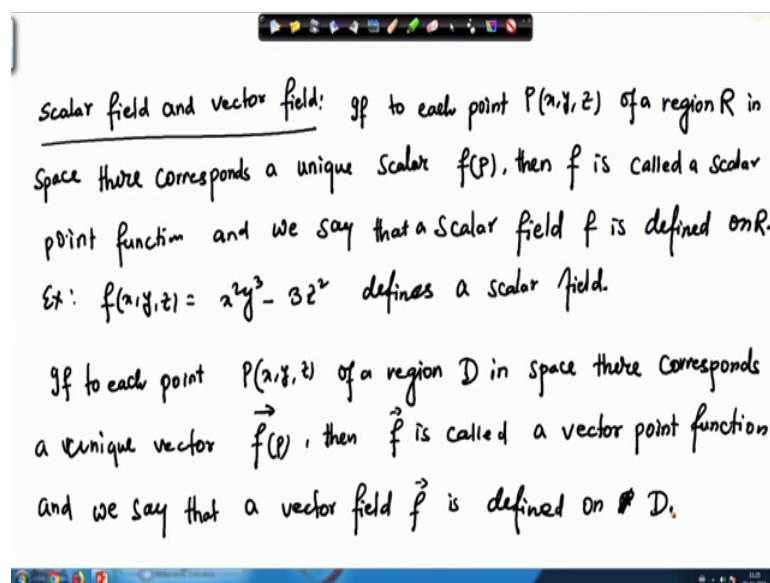 Scalar field and vector field: If to each point P(x,y,z) of a region R in
space there corresponds a unique scalar f(P), then f is called a scalar
point function and we say that a scalar field f is defined on R.
Ex: f(x,y,z) = x²y³ - 3z² defines a scalar field.
If to each point P(x,y,z) of a region D in space there corresponds
a unique vector f⃗(P), then f⃗ is called a vector point function
and we say that a vector field f⃗ is defined on D.